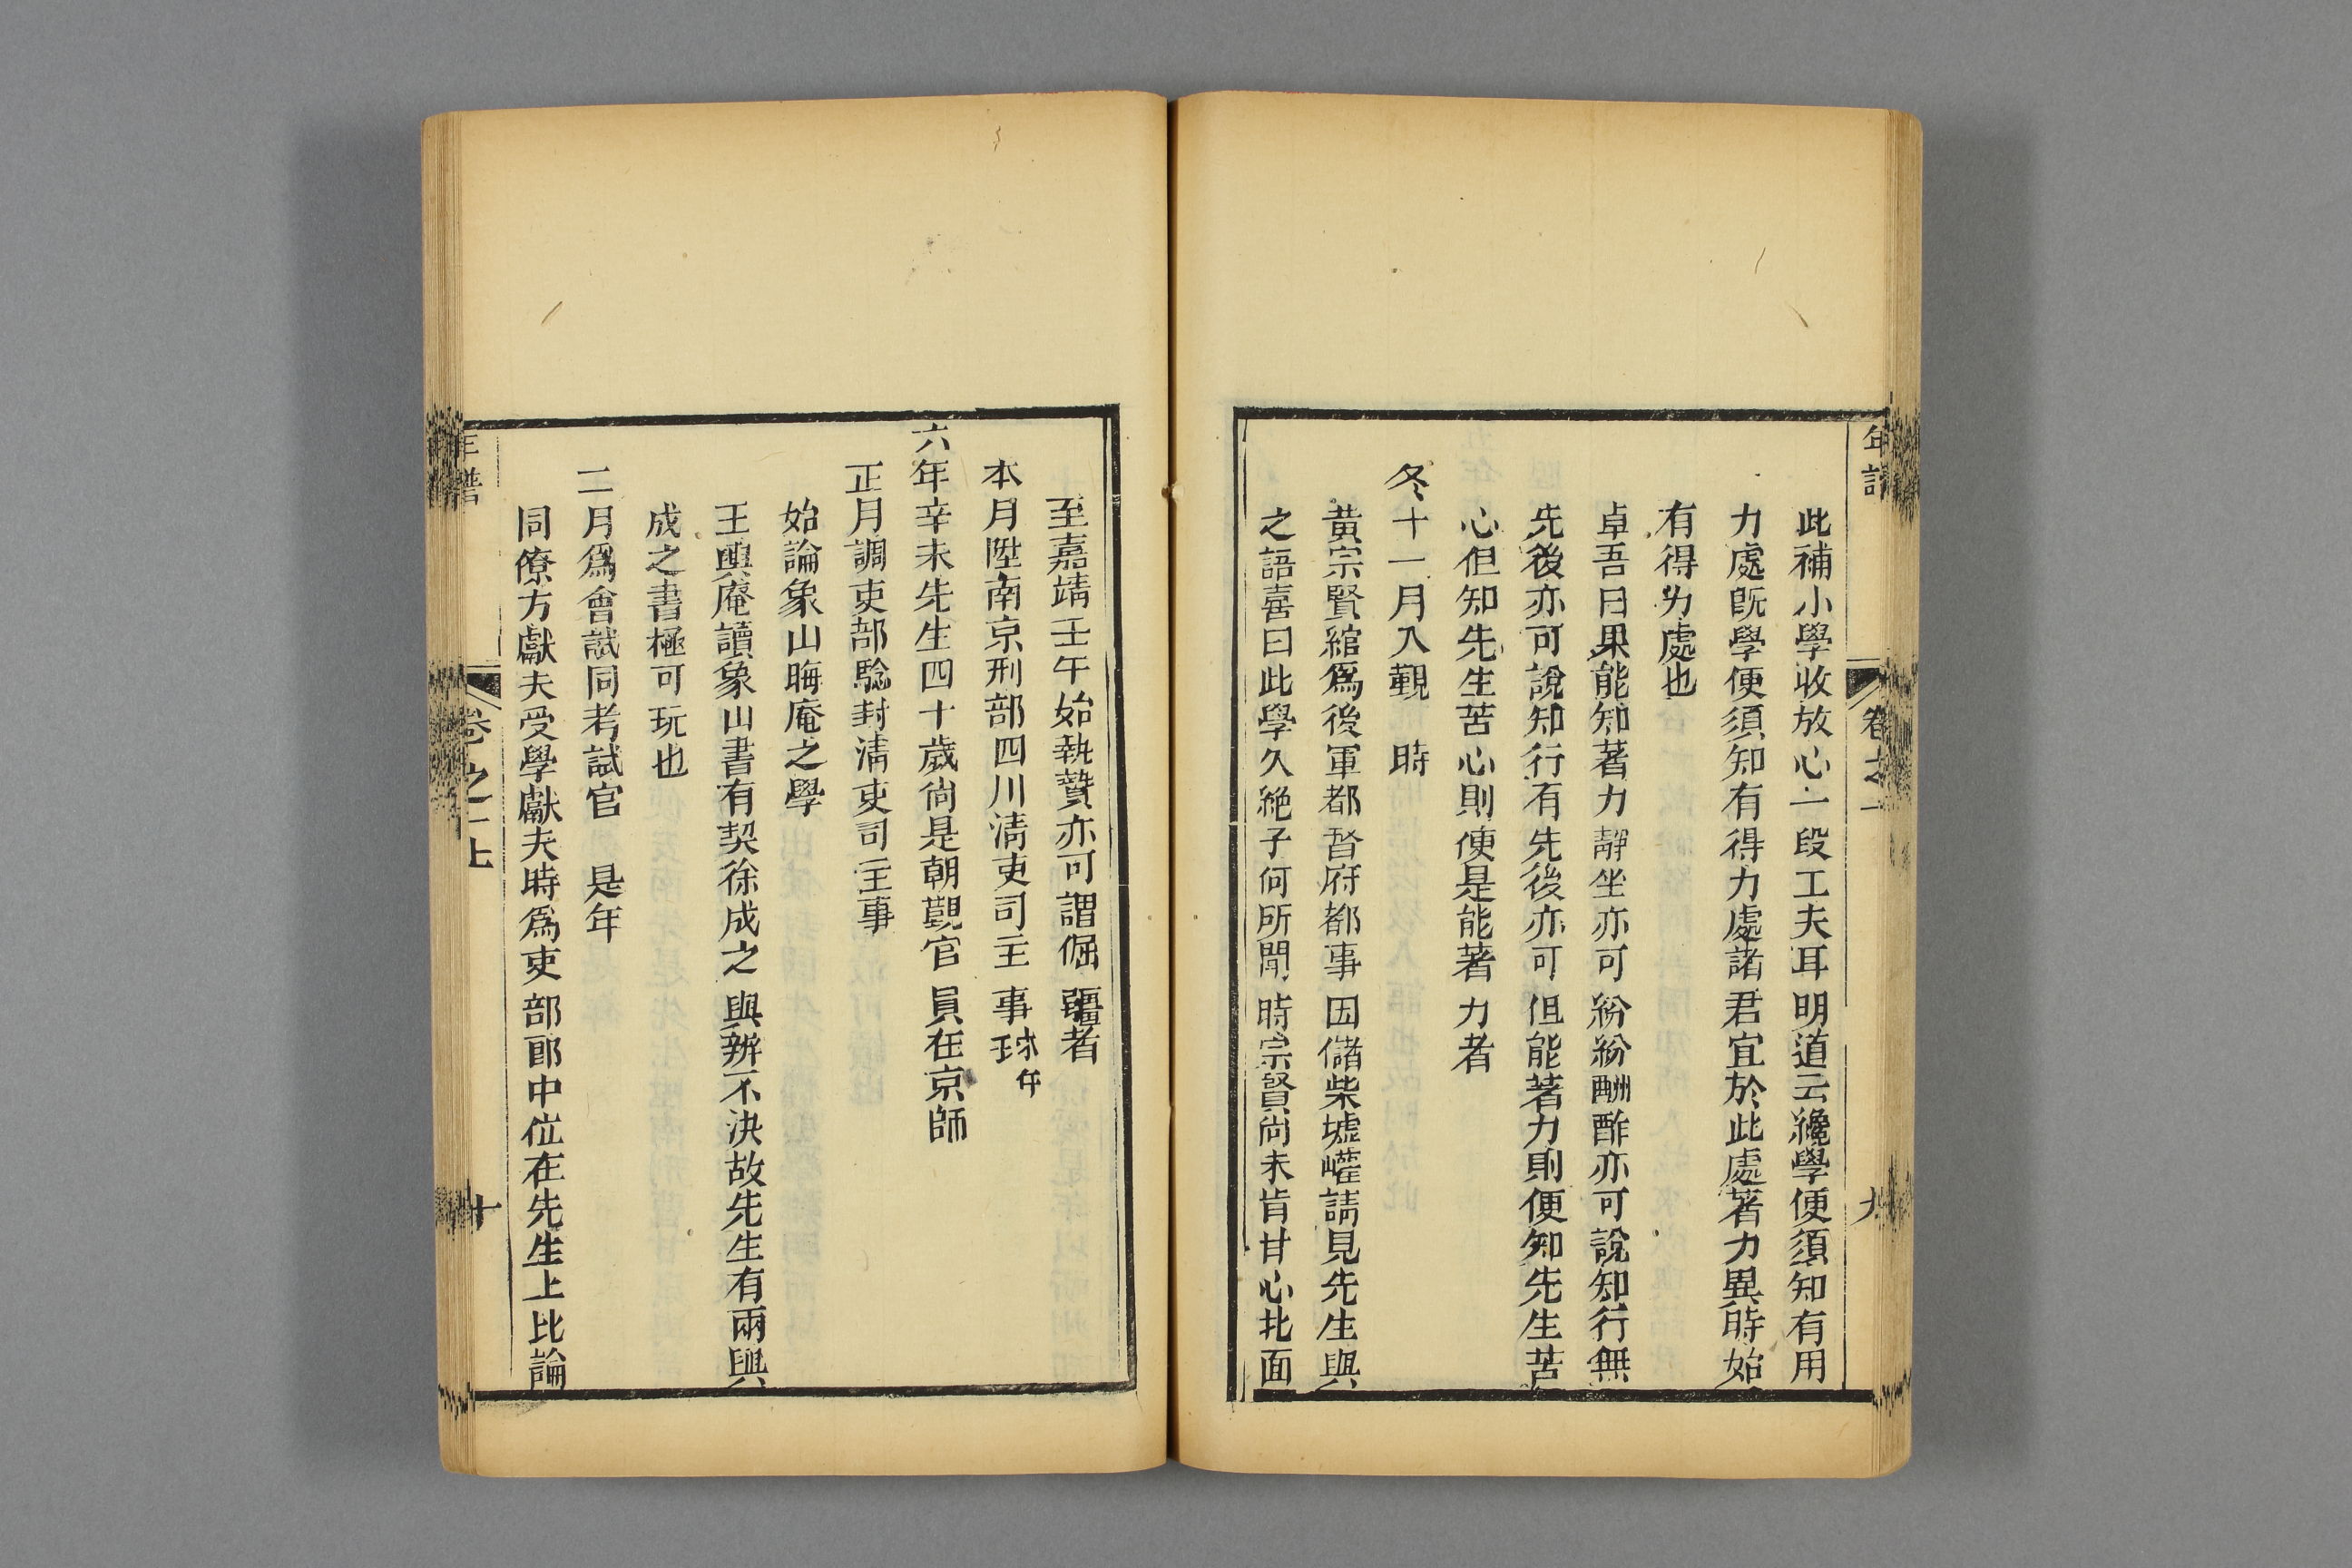 年譜
卷之一
九
此補小學收放心一段工夫耳明道云纔學便須知有用
力處旣學便須知有得力處諸君宜於此處著力異時始
有得力處也
卓吾曰果能知著力靜坐亦可紛紛酬酢亦可說知行無
先後亦可說知行有先後亦可但能著力則便知先生苦
心但知先生苦心則便是能著力者
冬十一月入觀 時
黃宗賢綰爲後軍都督府都事因儲柴墟巏請見先生與
之語喜曰此學久絶子何所聞時宗賢尚未肯甘心北面
至嘉靖壬午始執贄亦可謂倔彊者
本月陞南京刑部四川淸吏司主事
六年辛未先生四十歲尙是朝覲官員在京師
正月調吏部驗封淸吏司主事
始論象山晦庵之學
王輿庵讀象山書有契徐成之與辨不決故先生有兩與
成之書極可玩也
二月爲會試同考試官 是年
同僚方獻夫受學獻夫時爲吏部郎中位在先生上比論
年譜
卷之一上
十